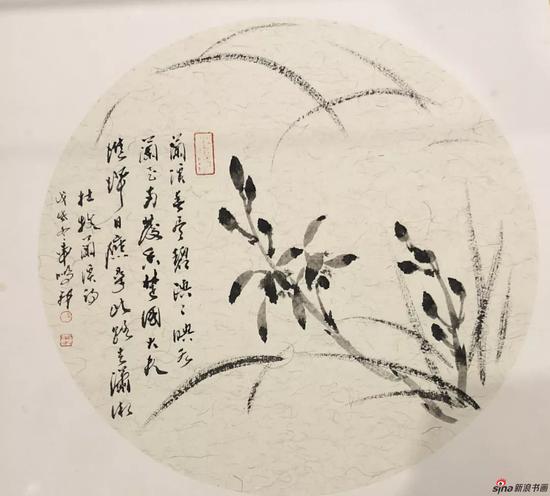 蘭溪春盡碧泱々映水
蘭花雨發香楚國大夫
憔悴日應尋此路去瀟湘
杜牧蘭溪詩
戊戌
sina 新浪书画